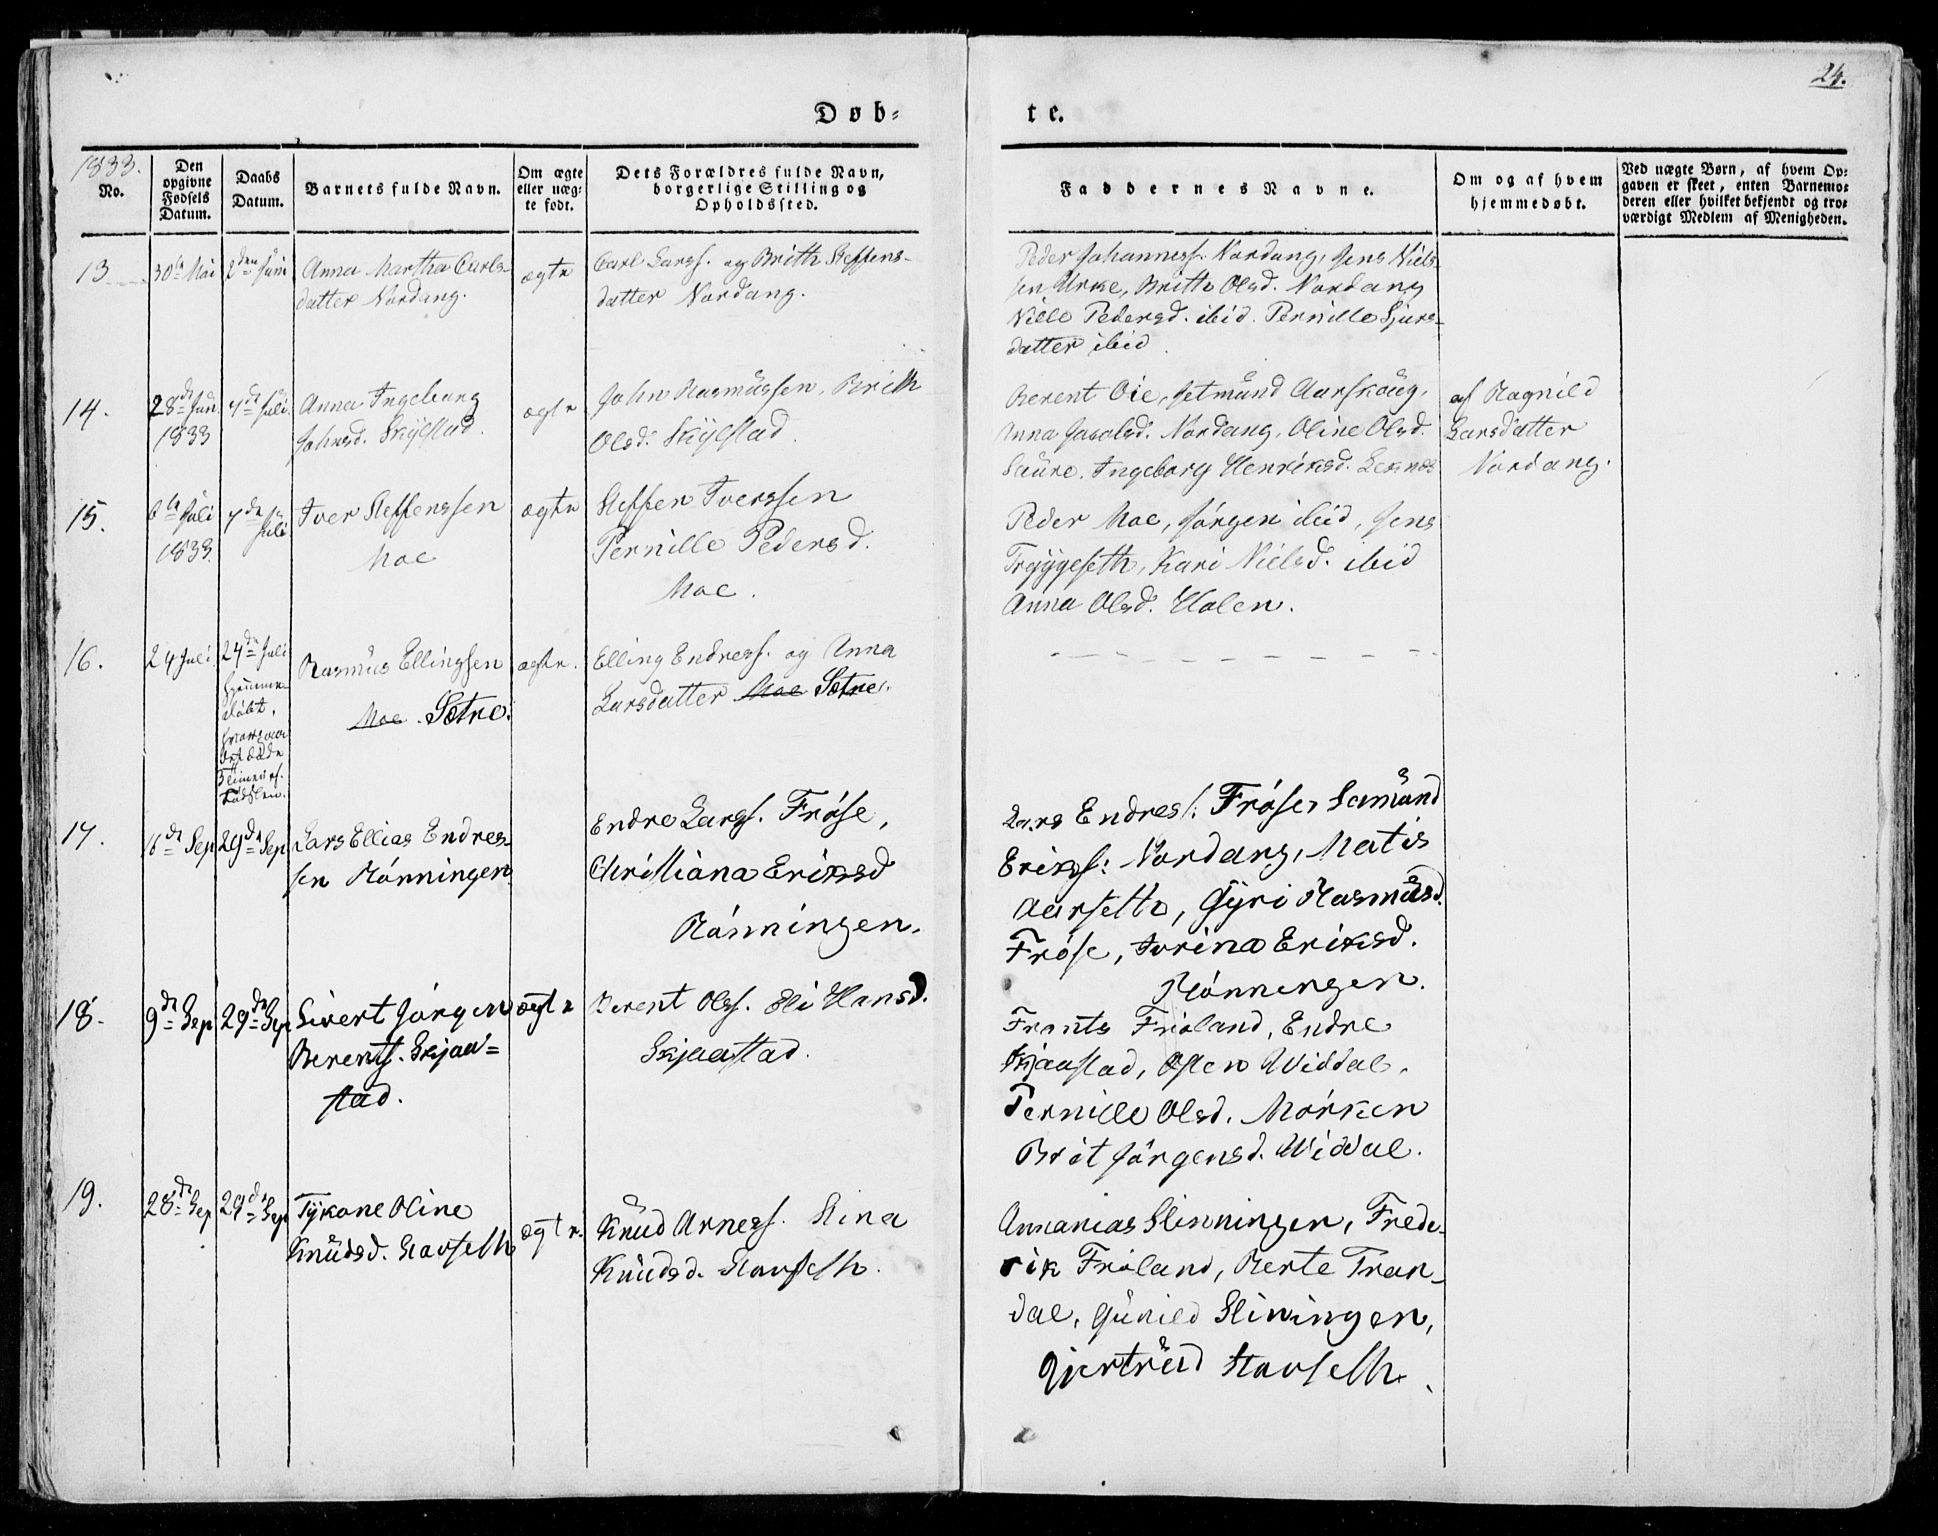 24.
Døb-
te.
1833.
No.
Den
opgivne
Fødsels
Datum.
Daabs
Datum.
Barnets fulde Navn.
Om ægte
eller uæg-
te født.
Dets Forældres fulde Navn,
borgerlige Stilling og
Opholdssted.
Faddernes Navne.
Om og af hvem
hjemmedøbt.
Ved uægte Børn, af hvem Op-
gaven er skeet, enten Barnemo-
deren eller hvilket bekjendt og tro-
værdigt Medlem af Menigheden.
13
30te Mai
2den Juni
Anna Martha Carls-
datter Nordang.
ægte
Carl Larss. og Brith Steffens-
datter Nordang.
Peder Johanness. Nordang, Jens Niels-
sen Urke, Britte Olsd. Nordang
Pedersd. ibid. Pernille Sjurs-
datter ibid.
14.
28de Juni
1833
7de Juli
Anna Ingeborg
Johnsd. Skylstad.
ægte
John Rasmussen, Brith
Olsd. Skylstad.
Berent Oie, Jetmund Aarskoug,
Anna Olsd. Nordang, Oline Olsd.
Saure, Ingeborg Henriksd. Leknes
af Ragnild
Larsdatter
Nordang.
15.
6te Juli
1833.
7de
Juli
Iver Steffenssen
Moe
ægte
Steffen Iverssen
Pernille Pedersd.
Moe.
Peder Moe, Jörgen ibid, Jens
Tryggeseth, Kari Nielsd. ibid
Anna Olsd. Holen.
16.
24 Juli
24de Juli
hjemme
døbt,
Timer ef.
Fødslen.
Rasmus Ellingsen
Moe. Sætre.
ægte.
Elling Endress. og Anna
Larsdatter Moe Sætre.
17.
6de Sep
29de Sep
Lars Ellias Endres-
sen Rönningen
Endre Larss. Fröse,
Christiana Eriksd
Rönningen.
Lars Endress: Fröse, Samund
Erikss: Nordang, Matis
Aarseth, Gyri Rasmusd.
Fröse, Eriksd.
Rönningen.
18.
9de Sep
29de Sep
Sivert Jörgen
Berents. Skjaa=
stad.
ægte
Berent Olss. Eli Hansd.
Skjaastad.
Frants Friöland, Endre
Skjaastad, Osten Widdal,
Pernille Olsd. Mörken
Brit Jörgensd. Widdal.
19.
28de Sep
29de Sep
Tykone Oline
Knudsd. Stavseth
ægte.
Knud Arness. Stina
Knudsd. Stavseth.
Annanias Slinningen, Frede-
rik Friöland, Berte Tran-
dal, Gunild Slinningen,
Gjertrud Stavseth.